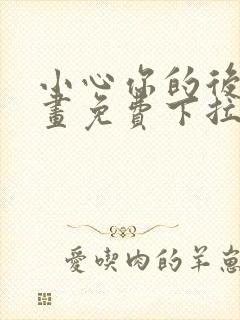 小心你的後
畫免費下拉
愛喫肉的羊崽